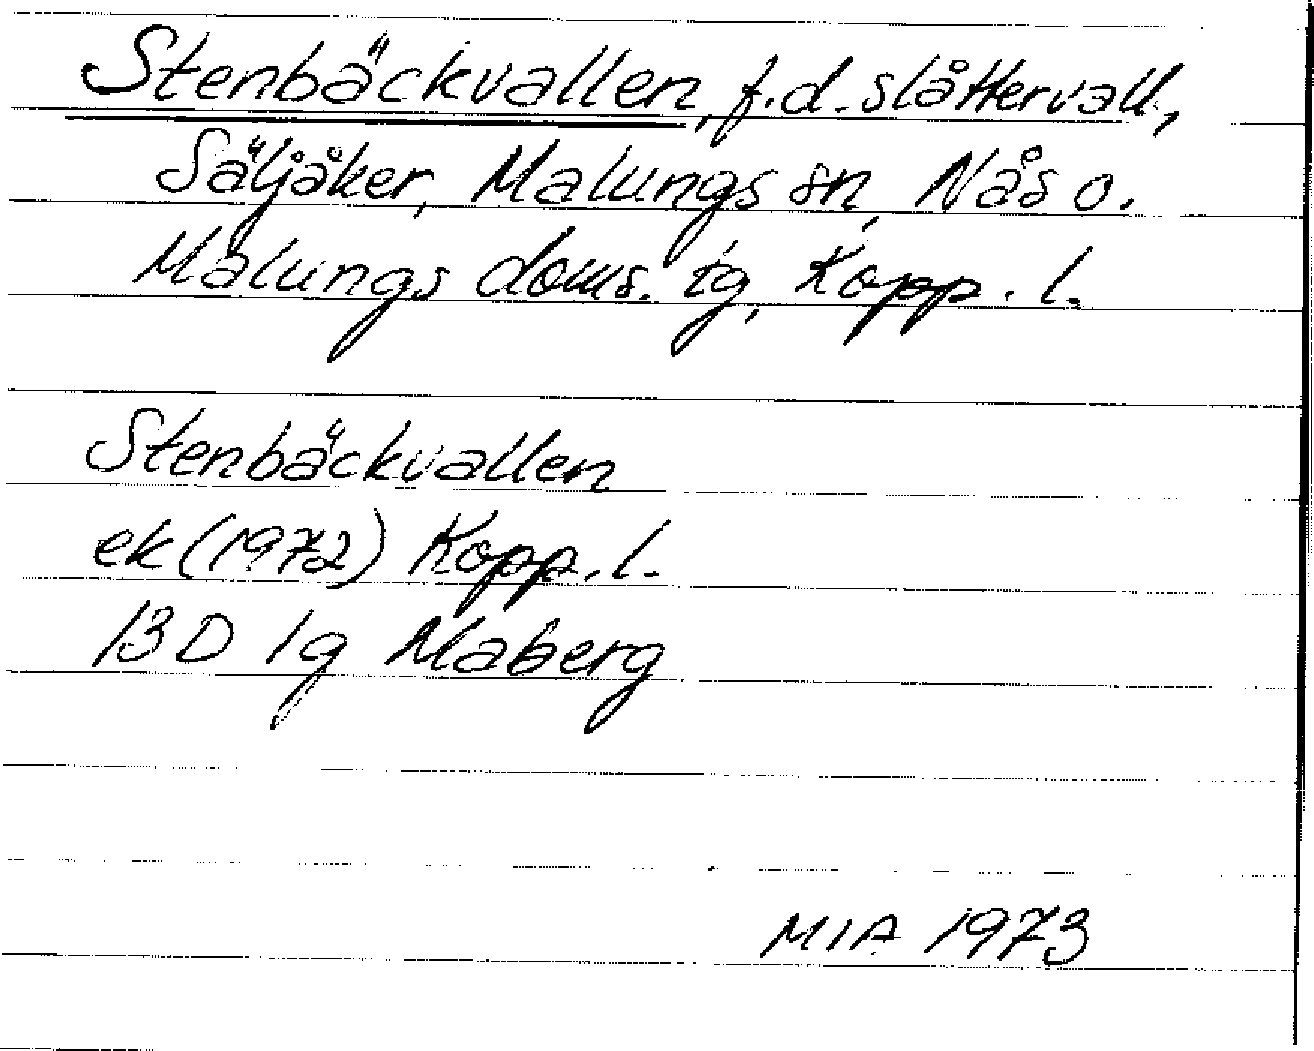 Stenbäckvallen, f.d. slåttervall,
Säljåker, Malungs sn, Nås o.
Malungs doms. tg, Kopp. l.
Stenbäckvallen
ek (1972) Kopp. l.
13 D 1g Maberg
MIA 1973